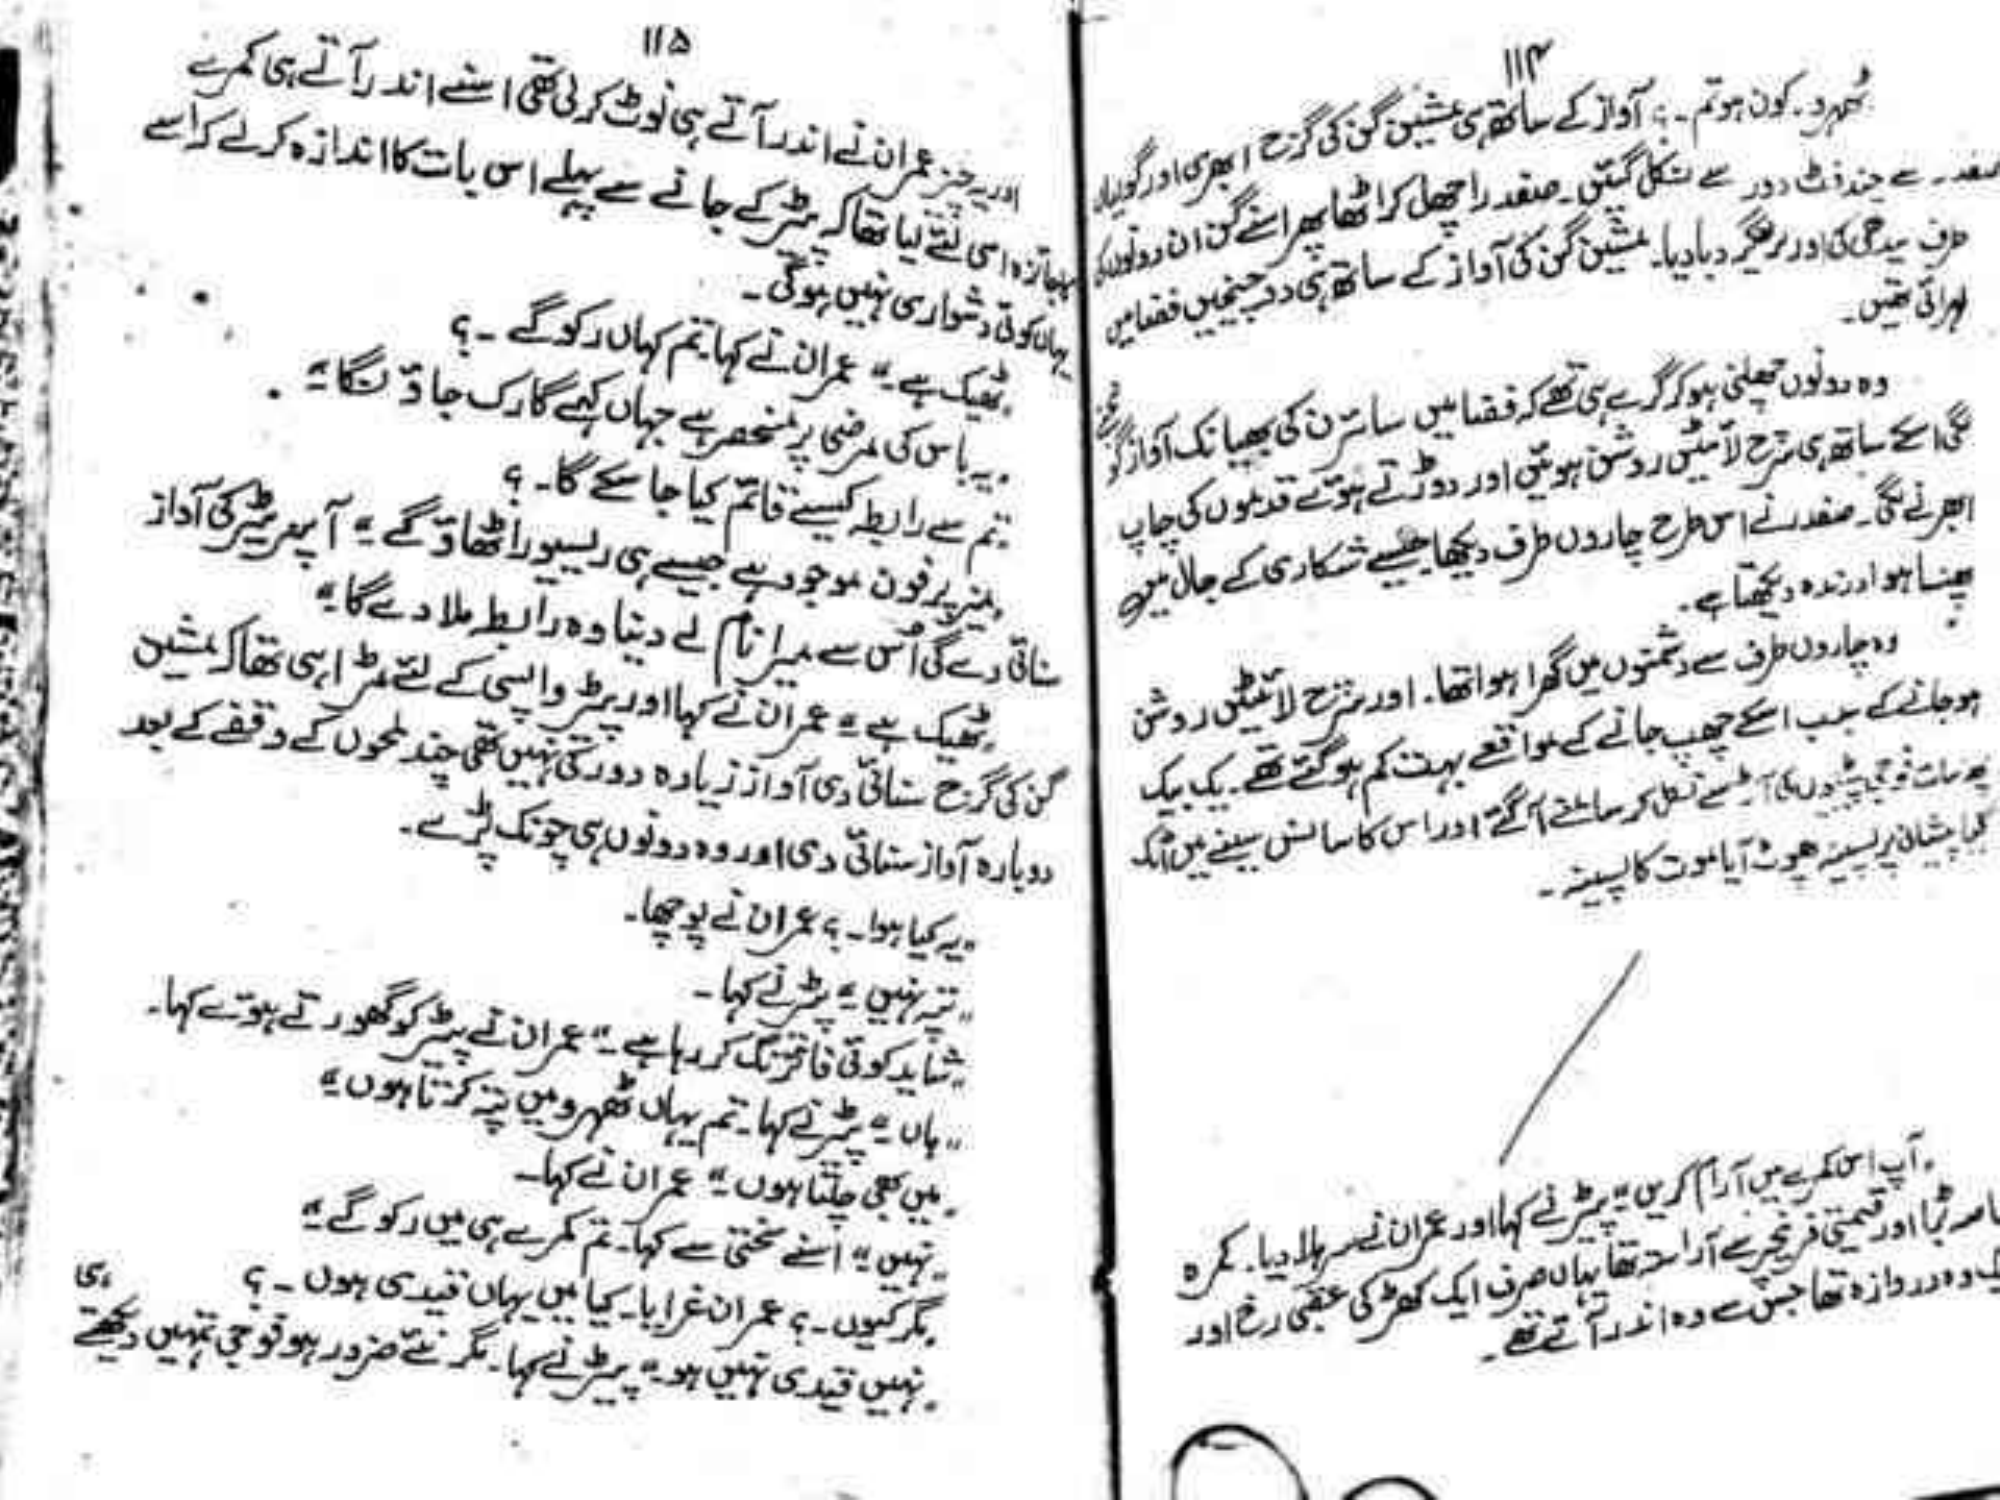 ۱۱۴
ٹھہرو۔ کون ہو تم۔؟ آواز کے ساتھ ہی مشین گن کی گرج ابھری اور گولیاں
صفدر سے چند فٹ دور سے نکل گئیں۔ صفدر اچھل کر اٹھا پھر اسنے گن ان دونوں کی
طرف سیدھی کی اور ٹریگر دبا دیا۔ مشین گن کی آواز کے ساتھ ہی دو چیخیں فضا میں
لہرائی تھیں۔
وہ دونوں چھلنی ہو کر گرے ہی تھے کہ فضا میں سائرن کی بھیانک آواز گونجنے
لگی اسکے ساتھ ہی سرخ لائیٹیں روشن ہوئیں اور دوڑتے ہوئے قدموں کی چاپ
ابھرنے لگی۔ صفدر نے اس طرح چاروں طرف دیکھا جیسے شکاری کے جال میں
پھنسا ہوا درندہ دیکھتا ہے۔
وہ چاروں طرف سے دشمنوں میں گھرا ہوا تھا۔ اور سرخ لائیٹیں روشن
ہو جانے کے سبب اسکے چھپ جانے کے مواقعے بہت کم ہو گئے تھے۔ یک بیک
چھ سات فوجی پیٹیوں کی آڑ سے نکل کر سامنے آگئے اور اس کا سانس سینے میں اٹک
گیا پیشانی پر پسینہ پھوٹ آیا موت کا پسینہ۔
"آپ اس کمرے میں آرام کریں۔" پیٹر نے کہا اور عمران نے سر ہلا دیا۔ کمرہ
خاصہ بڑا اور قیمتی فرنیچر سے آراستہ تھا یہاں صرف ایک کھڑکی عقبی رخ اور
ایک وہ دروازہ تھا جس سے وہ اندر آئے تھے۔
۱۱۵
اور یہ چیز عمران نے اندر آتے ہی نوٹ کر لی تھی اسنے اندر آتے ہی کمرے
کا جائزہ اسی لئے لیا تھا کہ پیٹر کے جانے سے پہلے اس بات کا اندازہ کر لے کہ اسے
یہاں کوئی دشواری نہیں ہو گی۔
"ٹھیک ہے۔" عمران نے کہا۔ تم کہاں رکو گے ۔؟
"یہ باس کی مرضی پر منحصر ہے جہاں کہے گا رک جاؤں گا۔"
"تم سے رابطہ کیسے قائم کیا جا سکے گا۔؟
"میز پر فون موجود ہے جیسے ہی ریسیور اٹھاؤ گے۔" آپریٹر کی آواز
سنائی دے گی اُس سے میرا نام لے دینا وہ رابطہ ملا دے گا۔"
"ٹھیک ہے۔" عمران نے کہا اور پیٹر واپسی کے لئے مڑا ہی تھا کہ مشین
گن کی گرج سنائی دی آواز زیادہ دور کی نہیں تھی چند لمحوں کے وقفے کے بعد
دوبارہ آواز سنائی دی اور وہ دونوں ہی چونک پڑے۔
"یہ کیا ہوا۔؟ عمران نے پوچھا۔
"پتہ نہیں۔" پیٹر نے کہا۔
"شاید کوئی فائرنگ کر رہا ہے۔" عمران نے پیٹر کو گھورتے ہوئے کہا۔
"ہاں۔" پیٹر نے کہا۔ تم یہاں ٹھہرو میں پتہ کرتا ہوں۔"
"میں بھی چلتا ہوں۔" عمران نے کہا۔
"نہیں۔" اسنے سختی سے کہا۔ تم کمرے ہی میں رکو گے۔"
"مگر کیوں۔؟ عمران غرایا۔ کیا میں یہاں قیدی ہوں ۔؟
"نہیں قیدی نہیں ہو۔" پیٹر نے کہا۔ مگر نئے ضرور ہو فوجی تمہیں دیکھتے ہی